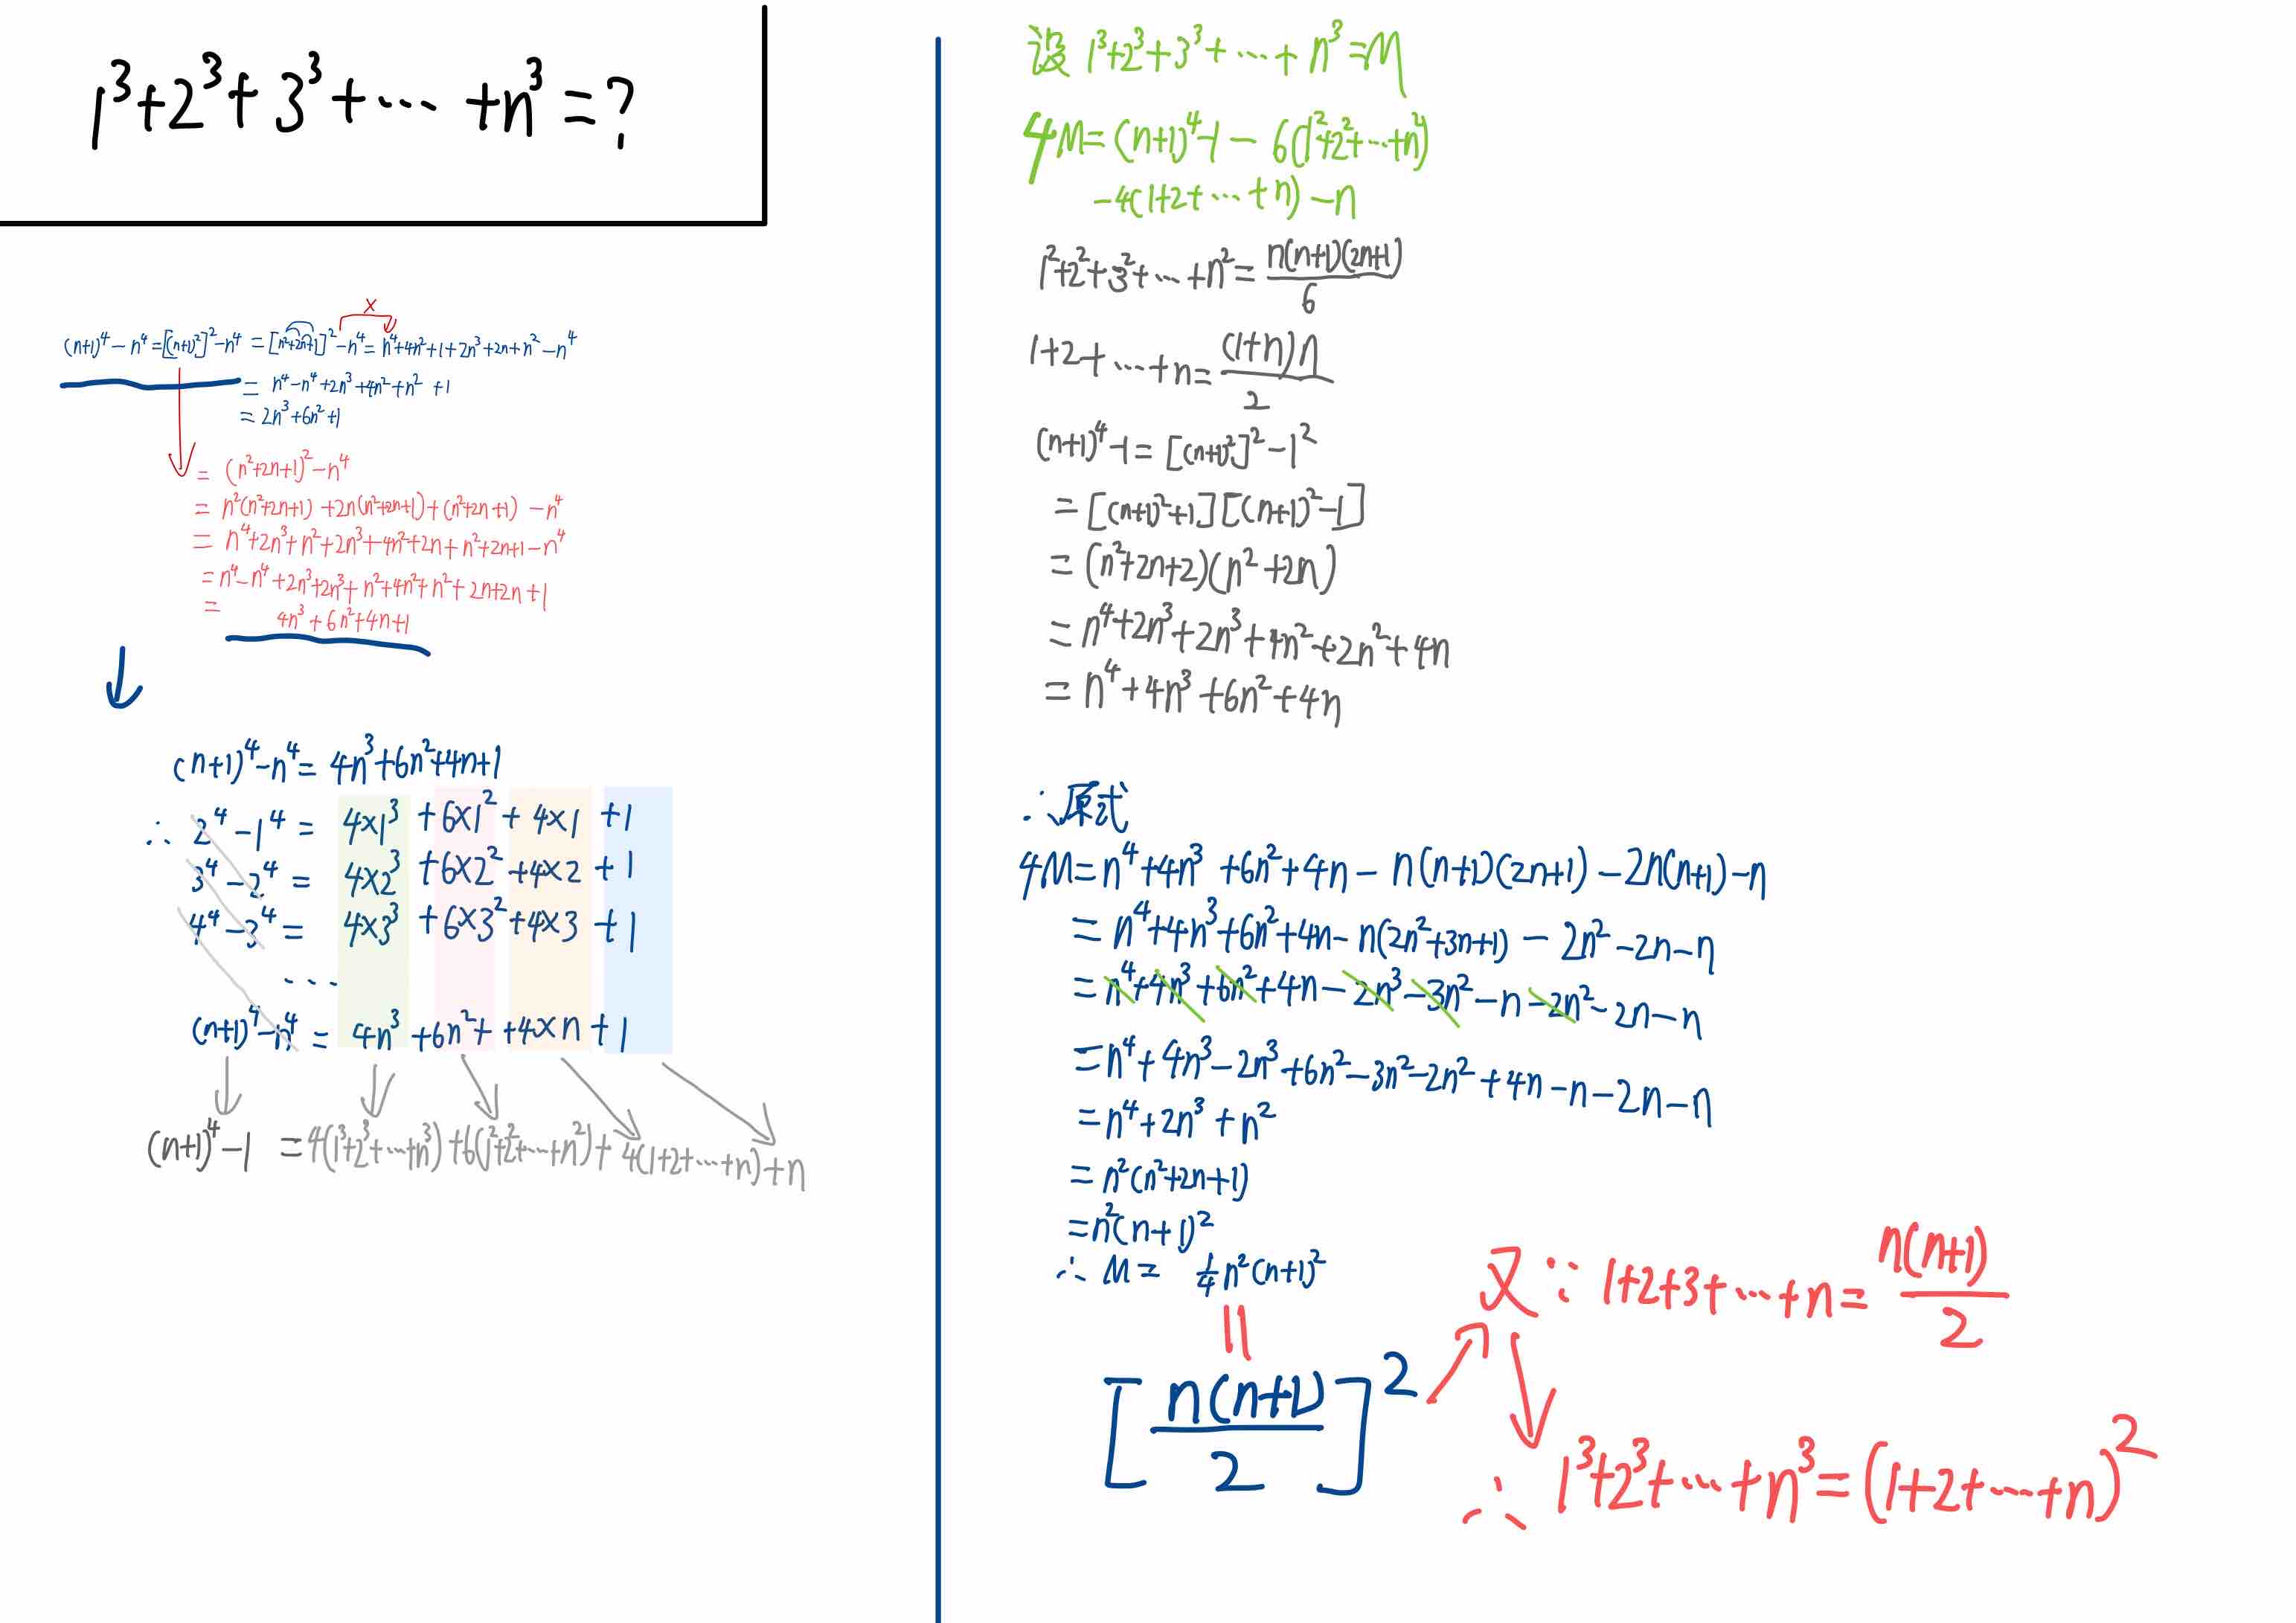 1³+2³+3³+⋯+n³=?
x
(n+1)⁴-n⁴=[(n+1)²]²-n⁴=[n²+2n+1]²-n⁴=n⁴+4n²+1+2n³+2n+n²-n⁴
=n⁴-n⁴+2n³+4n²+n²+1
=2n³+6n²+1
=(n²+2n+1)²-n⁴
=n²(n²+2n+1)+2n(n²+2n+1)+(n²+2n+1)-n⁴
=n⁴+2n³+n²+2n³+4n²+2n+n²+2n+1-n⁴
=n⁴-n⁴+2n³+2n³+n²+4n²+n²+2n+2n+1
=4n³+6n²+4n+1
(n+1)⁴-n⁴=4n³+6n²+4n+1
∴2⁴-1⁴=4×1³+6×1²+4×1+1
3⁴-2⁴=4×2³+6×2²+4×2+1
4⁴-3⁴=4×3³+6×3²+4×3+1
⋯
(n+1)⁴-n⁴=4n³+6n²++4×n+1
(n+1)⁴-1=4(1³+2³+⋯+n³)+6(1²+2²+⋯+n²)+4(1+2+⋯+n)+n
设1³+2³+3³+⋯+n³=M
4M=(n+1)⁴-1-6(1²+2²+⋯+n²)
-4(1+2+⋯+n)-n
1²+2²+3²+⋯+n²=n(n+1)(2n+1)/6
1+2+⋯+n=(1+n)n/2
(n+1)⁴-1=[(n+1)²]²-1²
=[(n+1)²+1][(n+1)²-1]
=(n²+2n+2)(n²+2n)
=n⁴+2n³+2n³+4n²+2n²+4n
=n⁴+4n³+6n²+4n
∴原式
4M=n⁴+4n³+6n²+4n-n(n+1)(2n+1)-2n(n+1)-n
=n⁴+4n³+6n²+4n-n(2n²+3n+1)-2n²-2n-n
=n⁴+4n³+6n²+4n-2n³-3n²-n-2n²-2n-n
=n⁴+4n³-2n³+6n²-3n²-2n²+4n-n-2n-n
=n⁴+2n³+n²
=n²(n²+2n+1)
=n²(n+1)²
∴M=1/4n²(n+1)²
=
[n(n+1)/2]²
又∵1+2+3+⋯+n=n(n+1)/2
∴1³+2³+⋯+n³=(1+2+⋯+n)²